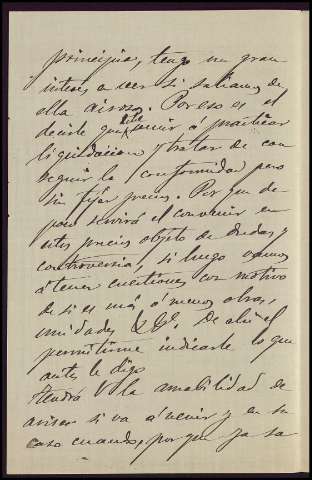 principia, tengo un gran
interes a ver si salimos de
ella airosos. Por eso es el
decirle que venir á practicar
liquidacion y tratar de con
seguir la conformidad pero
sin fijar precios. Por que de
poco servirá el convenir en
estos precios objeto de dudas y
controversia, si luego vamos
á tener cuestiones con motivo
de si es más ó menos obras,
unidades &. &ª. De ahí el
permitirme indicarle lo que
antes le digo
Tendrá V. la amabilidad de
avisar si va á venir y en su
caso cuando, por que ya sa